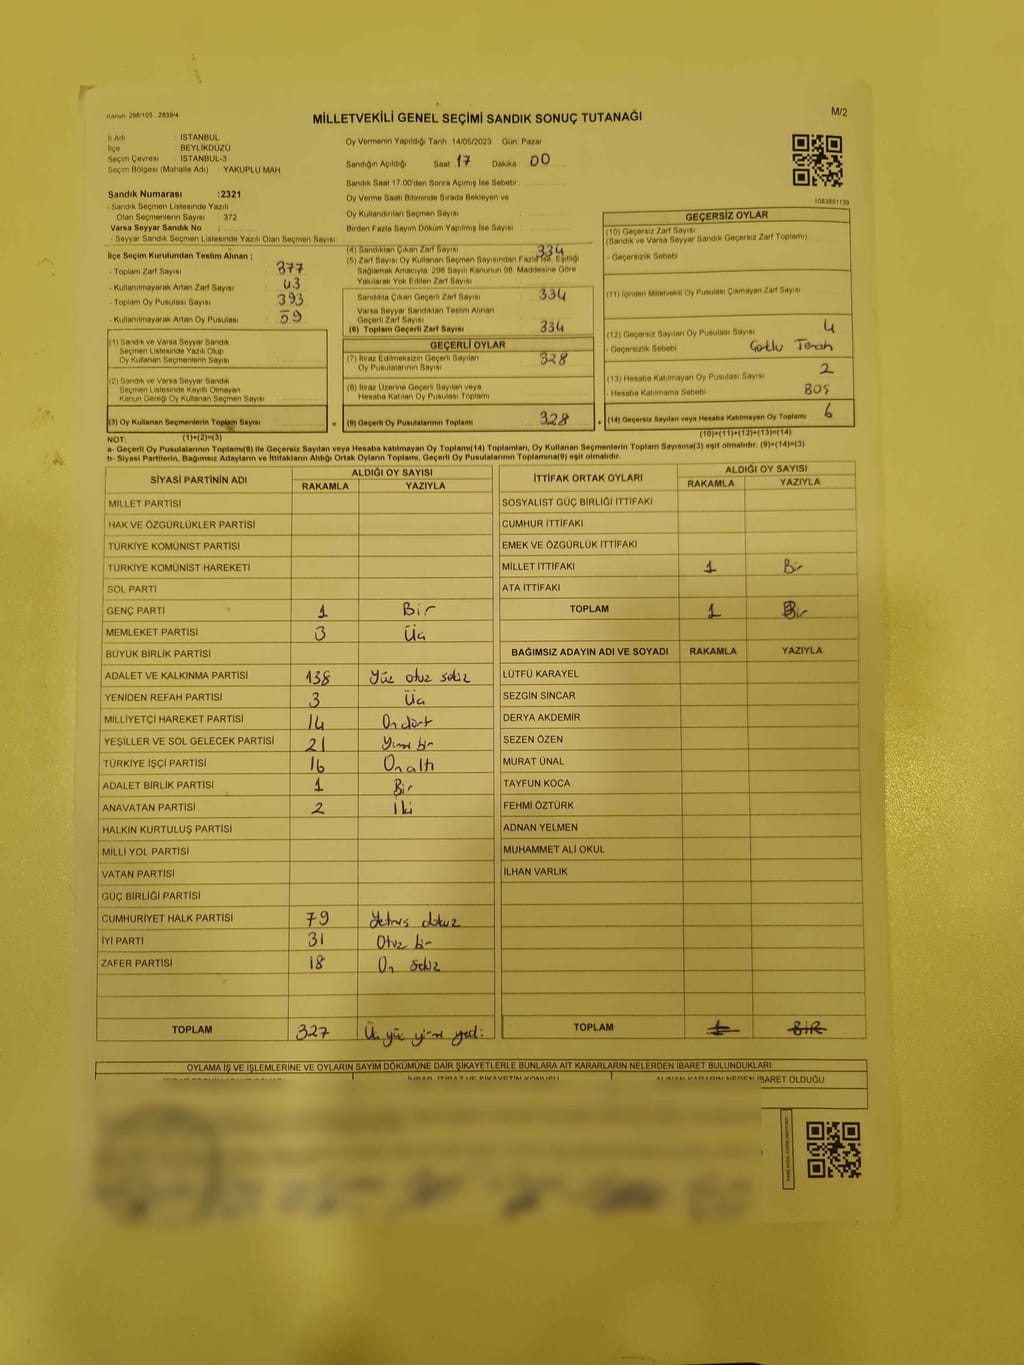 Kanun: 298/105 , 2839/4
MİLLETVEKİLİ GENEL SEÇİMİ SANDIK SONUÇ TUTANAĞI
M/2
İl Adı : İSTANBUL
İlçe : BEYLİKDÜZÜ
Seçim Çevresi : İSTANBUL-3
Seçim Bölgesi (Mahalle Adı) : YAKUPLU MAH
Sandık Numarası :2321
- Sandık Seçmen Listesinde Yazılı
Olan Seçmenlerin Sayısı : 372
Varsa Seyyar Sandık No :
- Seyyar Sandık Seçmen Listesinde Yazılı Olan Seçmen Sayısı:
Oy Vermenin Yapıldığı Tarih: 14/05/2023 Gün: Pazar
Sandığın Açıldığı Saat: 17 Dakika: 00
Sandık Saat 17:00'den Sonra Açılmış İse Sebebi:
Oy Verme Saati Bitiminde Sırada Bekleyen ve
Oy Kullandırılan Seçmen Sayısı :
Birden Fazla Sayım Döküm Yapılmış İse Sayısı :
1083851139
İlçe Seçim Kurulundan Teslim Alınan ;
- Toplam Zarf Sayısı : 377
- Kullanılmayarak Artan Zarf Sayısı : 43
- Toplam Oy Pusulası Sayısı : 393
- Kullanılmayarak Artan Oy Pusulası : 59
(1) Sandık ve Varsa Seyyar Sandık
Seçmen Listesinde Yazılı Olup
Oy Kullanan Seçmenlerin Sayısı
(2) Sandık ve Varsa Seyyar Sandık
Seçmen Listesinde Kayıtlı Olmayan
Kanun Gereği Oy Kullanan Seçmen Sayısı
(3) Oy Kullanan Seçmenlerin Toplam Sayısı
(4) Sandıktan Çıkan Zarf Sayısı : 334
(5) Zarf Sayısı Oy Kullanan Seçmen Sayısından Fazla İse, Eşitliği
Sağlamak Amacıyla, 298 Sayılı Kanunun 98. Maddesine Göre
Yakılarak Yok Edilen Zarf Sayısı :
Sandıkta Çıkan Geçerli Zarf Sayısı : 334
Varsa Seyyar Sandıktan Teslim Alınan
Geçerli Zarf Sayısı
(6) Toplam Geçerli Zarf Sayısı : 334
GEÇERLİ OYLAR
(7) İtiraz Edilmeksizin Geçerli Sayılan
Oy Pusulalarının Sayısı : 328
(8) İtiraz Üzerine Geçerli Sayılan veya
Hesaba Katılan Oy Pusulası Toplamı
= (9) Geçerli Oy Pusulalarının Toplamı : 328 +
GEÇERSİZ OYLAR
(10) Geçersiz Zarf Sayısı
(Sandık ve Varsa Seyyar Sandık Geçersiz Zarf Toplamı)
- Geçersizlik Sebebi :
(11) İçinden Milletvekili Oy Pusulası Çıkmayan Zarf Sayısı
(12) Geçersiz Sayılan Oy Pusulası Sayısı : 4
- Geçersizlik Sebebi :
(13) Hesaba Katılmayan Oy Pusulası Sayısı : 2
- Hesaba Katılmama Sebebi : BOŞ
(14) Geçersiz Sayılan veya Hesaba Katılmayan Oy Toplamı : 6
NOT: (1)+(2)=(3) (10)+(11)+(12)+(13)=(14)
a- Geçerli Oy Pusulalarının Toplamı(9) ile Geçersiz Sayılan veya Hesaba katılmayan Oy Toplamı(14) Toplamları, Oy Kullanan Seçmenlerin Toplam Sayısına(3) eşit olmalıdır. (9)+(14)=(3)
b- Siyasi Partilerin, Bağımsız Adayların ve İttifakların Aldığı Ortak Oyların Toplamı, Geçerli Oy Pusulalarının Toplamına(9) eşit olmalıdır.
SİYASİ PARTİNİN ADI ALDIĞI OY SAYISI
RAKAMLA YAZIYLA
MİLLET PARTİSİ
HAK VE ÖZGÜRLÜKLER PARTİSİ
TÜRKİYE KOMÜNİST PARTİSİ
TÜRKİYE KOMÜNİST HAREKETİ
SOL PARTİ
GENÇ PARTİ 1 Bir
MEMLEKET PARTİSİ 3 Üç
BÜYÜK BİRLİK PARTİSİ
ADALET VE KALKINMA PARTİSİ 138 Yüz otuz sekiz
YENİDEN REFAH PARTİSİ 3 Üç
MİLLİYETÇİ HAREKET PARTİSİ 14 On dört
YEŞİLLER VE SOL GELECEK PARTİSİ 21 Yirmi bir
TÜRKİYE İŞÇİ PARTİSİ 16 On altı
ADALET BİRLİK PARTİSİ 1 Bir
ANAVATAN PARTİSİ 2 İki
HALKIN KURTULUŞ PARTİSİ
MİLLİ YOL PARTİSİ
VATAN PARTİSİ
GÜÇ BİRLİĞİ PARTİSİ
CUMHURİYET HALK PARTİSİ 79 Yetmiş dokuz
İYİ PARTİ 31 Otuz bir
ZAFER PARTİSİ 18 On sekiz
TOPLAM 327 Üç yüz yirmi yedi
İTTİFAK ORTAK OYLARI ALDIĞI OY SAYISI
RAKAMLA YAZIYLA
SOSYALİST GÜÇ BİRLİĞİ İTTİFAKI
CUMHUR İTTİFAKI
EMEK VE ÖZGÜRLÜK İTTİFAKI
MİLLET İTTİFAKI 1 Bir
ATA İTTİFAKI
TOPLAM 1 Bir
BAĞIMSIZ ADAYIN ADI VE SOYADI RAKAMLA YAZIYLA
LÜTFÜ KARAYEL
SEZGİN SİNCAR
DERYA AKDEMİR
SEZEN ÖZEN
MURAT ÜNAL
TAYFUN KOCA
FEHMİ ÖZTÜRK
ADNAN YELMEN
MUHAMMET ALİ OKUL
İLHAN VARLIK
TOPLAM 1 BİR
OYLAMA İŞ VE İŞLEMLERİNE VE OYLARIN SAYIM DÖKÜMÜNE DAİR ŞİKAYETLERLE BUNLARA AİT KARARLARIN NELERDEN İBARET BULUNDUKLARI
İHBAR, İTİRAZ VE ŞİKAYETİN KONUSU ALINAN KARARIN NEDEN İBARET OLDUĞU